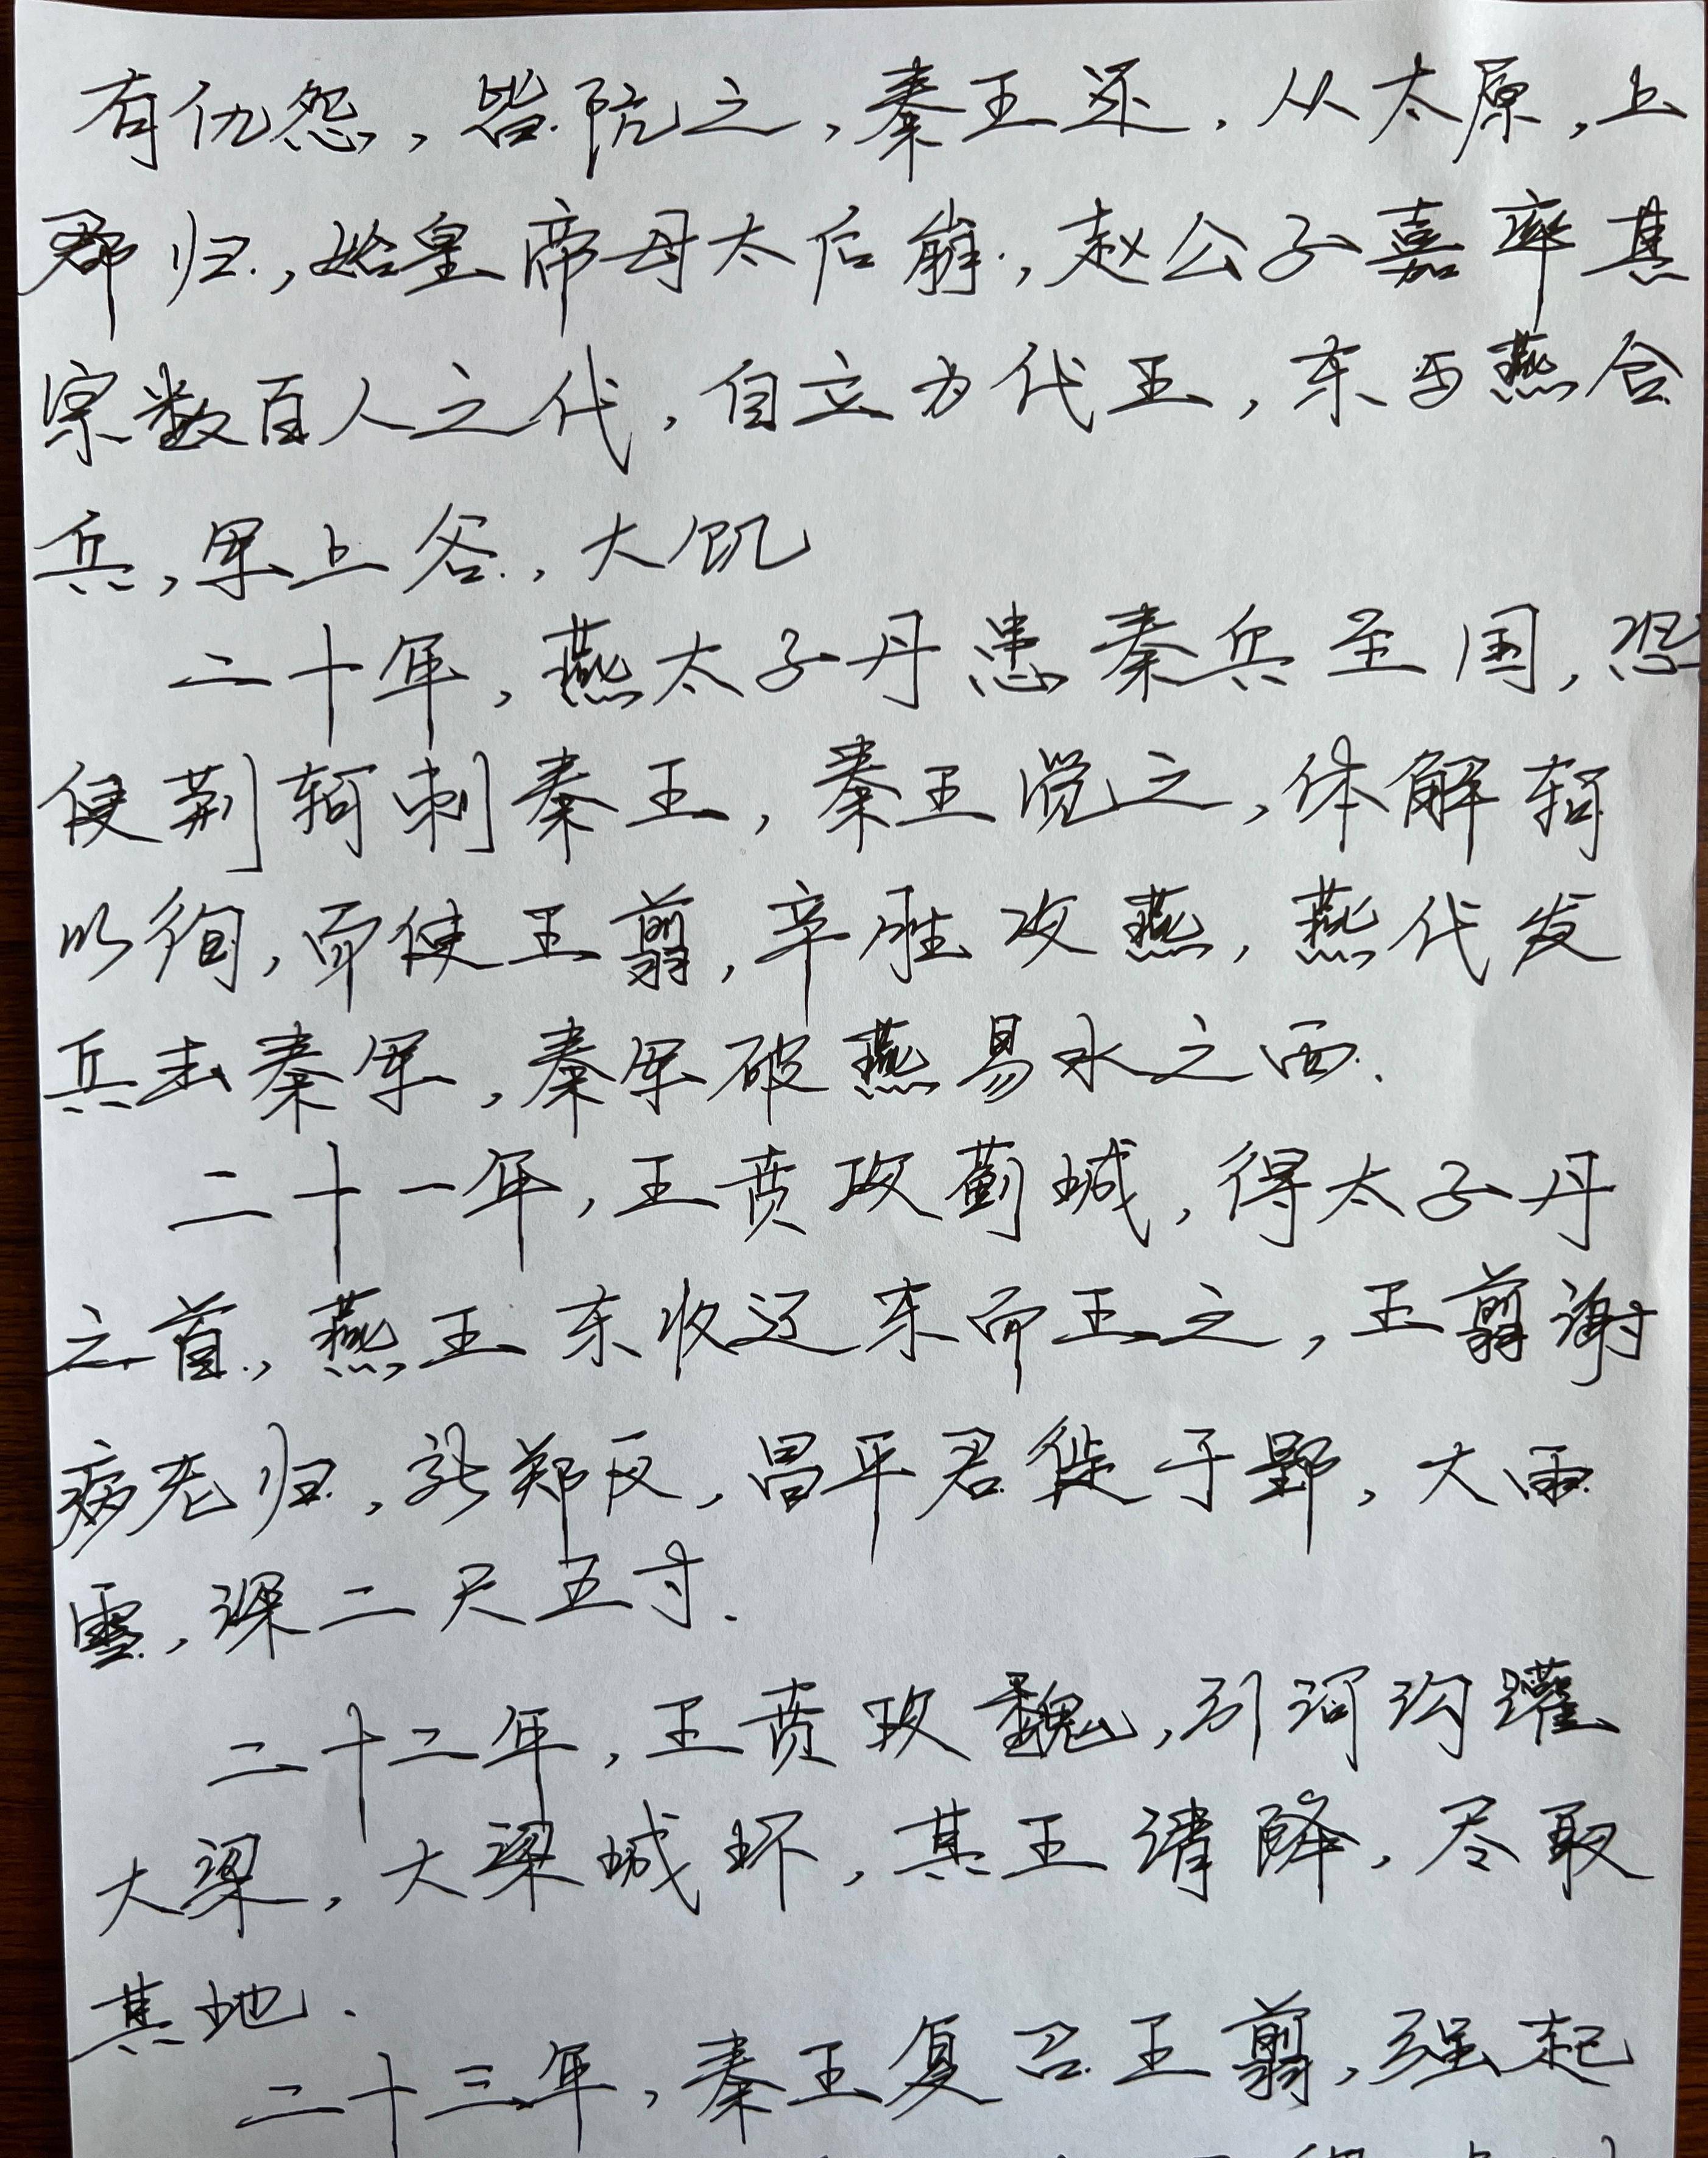 有仇怨，皆阬之，秦王还，从太原，上
郡归，始皇帝母太后崩，赵公子嘉率其
宗数百人之代，自立为代王，东与燕合
兵，军上谷，大饥
二十年，燕太子丹患秦兵至国，恐
使荆轲刺秦王，秦王觉之，体解轲
以徇，而使王翦，辛胜攻燕，燕代发
兵击秦军，秦军破燕易水之西.
二十一年，王贲攻蓟城，得太子丹
之首，燕王东收辽东而王之，王翦谢
病老归，新郑反，昌平君徙于郢，大雨
雪，深二尺五寸.
二十二年，王贲攻魏，引河沟灌
大梁，大梁城坏，其王请降，尽取
其地.
二十三年，秦王复召王翦，强起